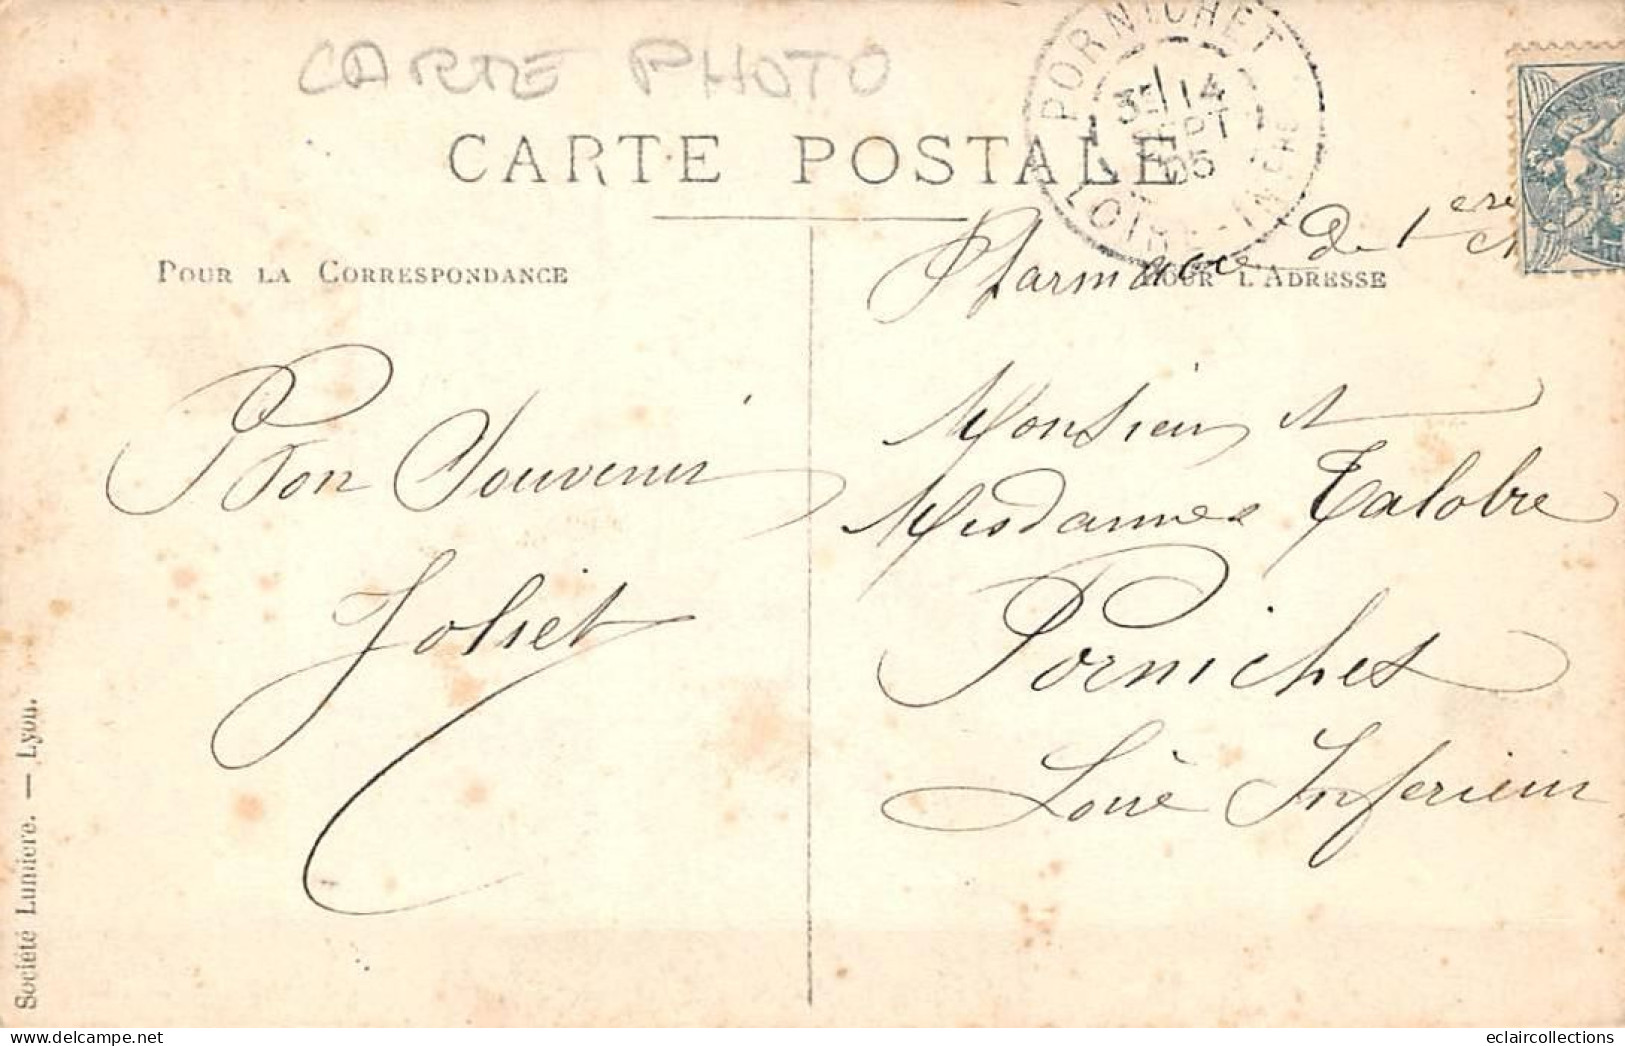 CARTE PHOTO
PORNICHET
3E 14
SEPT
05
LOIRE-INFRE
CARTE POSTALE
POUR LA CORRESPONDANCE
POUR L'ADRESSE
Pharmacie De 1ere
Bon Souvenir
Joliet
Monsieur et
Mesdammes Talobre
Pornichet
Loire Inferieur
Société Lumière. — Lyon.
eclaircollections
https://www.delcampe.net